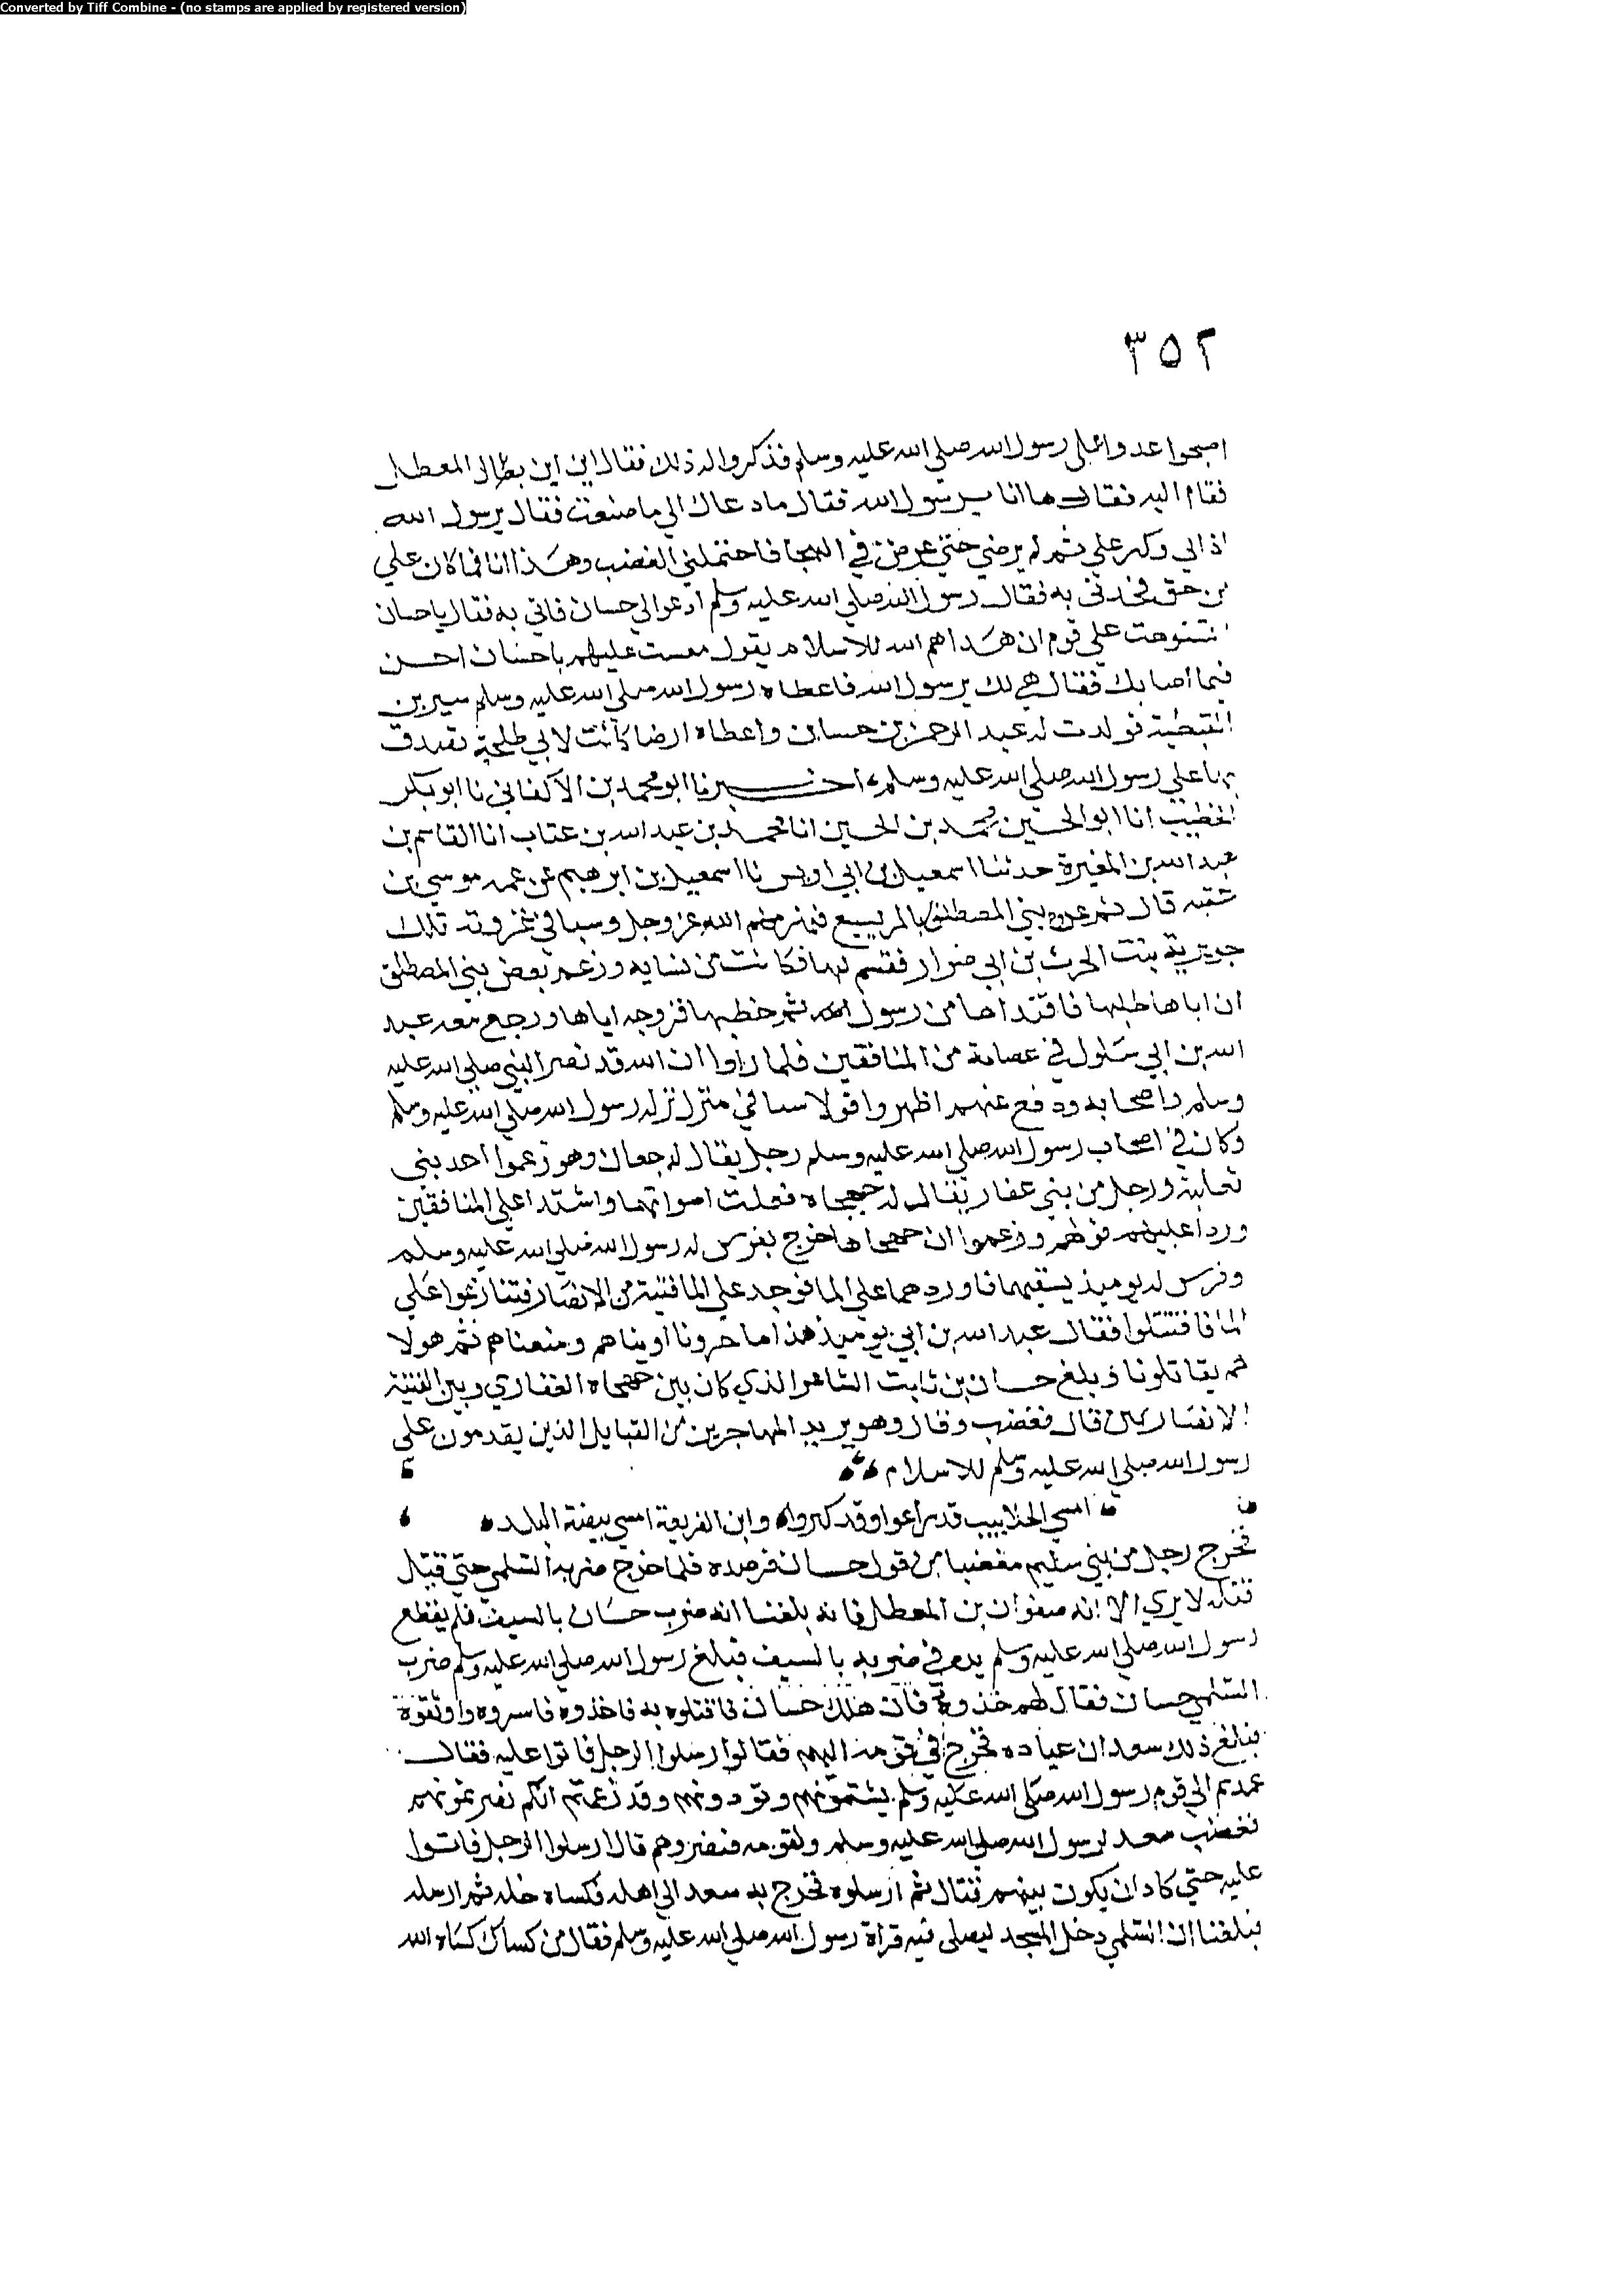 Converted by Tiff Combine - (no stamps are applied by registered version)
٣٥٢
اصبحوا غدوا علي رسول الله صلي الله عليه وسلم فذكروا له ذلك فقال اين ابن المعطل
فقام اليه فقال ها انا يرسول الله فقال ما دعاك الي ما صنعت فقال يرسول الله
اذاني وكبر علي ثم لم يرضي حتي عرض في الهجا فاحتملني الغضب وهذا انا فما كان علي
من حق فخذني به فقال رسول الله صلي الله عليه وسلم ادعوا لي حسان فاتي به فقال يا حسان
اتشوهت علي قوم ان هداهم الله للاسلام يقول عليهم يا حسان احسن
فيما اصابك فقال هي لك يرسول الله فاعطاه رسول الله صلي الله عليه وسلم سيرين
القبطية فولدت له عبد الرحمن بن حسان واعطاه ارضا كانت لابي طلحة تصدق
بها علي رسول الله صلي الله عليه وسلم اخبرنا ابو محمد بن الاكفاني نا ابو بكر
الخطيب انا ابو الحسين محمد بن الحسين انا محمد بن عبد الله بن عتاب انا القاسم بن
عبد الله بن المغيرة حدثنا اسمعيل بن ابي اويس نا اسمعيل بن ابرهيم عن عمه موسي بن
عقبه قال ثم بني المصطلق بالمريسيع فهزمهم الله عز وجل وسبا في غزوته تلك
جويرية بنت الحرث بن ابي ضرار فقسم لها فكانت من نسايه وزعم بعض بني المصطلق
ان اباها طلبها فافتداها من رسول الله ثم خطبها فزوجه اياها ورجع معه عبد
الله بن ابي سلول في عصابة من المنافقين فلما راوا ان الله قد نصر النبي صلي الله عليه
وسلم واصحابه ودفع عنهم اظهروا قولا سيا في منزل نزله رسول الله صلي الله عليه وسلم
وكان في اصحاب رسول الله صلي الله عليه وسلم رجل يقال له جعال وهو زعموا احد بني
ثعلبة ورجل من بني غفار يقال له جهجاه فعلت اصواتهما واشتدا علي المنافقين
وردا عليهم قولهم وزعموا ان جهجاها خرج بفرس لرسول الله صلي الله عليه وسلم
وفرس له يوميذ يسقيهما فاوردهما علي الما فوجد علي الما فتية من الانصار فتنازعوا علي
الما فاقتتلوا فقال عبد الله بن ابي يوميذ هذا ما جزونا اويناهم ومنعناهم ثم هولا
هم يقاتلونا وبلغ حسان بن ثابت الشاعر الذي كان بين جهجاه الغفاري وبين الفتية
الانصاريين قال فغضب وقال وهو يريد المهاجرين من القبايل الذين يقدمون علي
رسول الله صلي الله عليه وسلم للاسلام
امسي الجلابيب قد راعوا وقد كثروا وابن الفريعة امسي بيضة البلد
فخرج رجل من بني سليم مغضبا من قول حسان فرصده فلما خرج ضربه السلمي حتي قيل
قتله لا يري الا انه صفوان بن المعطل فانه بلغنا انه ضرب حسان بالسيف فلم يقطع
رسول الله صلي الله عليه وسلم يده في ضربه بالسيف فبلغ رسول الله صلي الله عليه وسلم ضرب
السلمي حسان فقال لهم خذوه فان هلك حسان فاقتلوه به فاخذوه فاسروه واوثقوه
فبلغ ذلك سعد ان عباده فخرج في قومه اليهم فقالوا ارسلوا الرجل فابوا عليه فقال
عمدتم الي قوم رسول الله صلي الله عليه وسلم يشتمونهم وتوذونهم وقد زعمتم انكم نصرتموهم
فغضب سعد لرسول الله صلي الله عليه وسلم ولقومه فنصروهم قال ارسلوا الرجل فابوا
عليه حتي كاد ان يكون بينهم قتال ثم ارسلوه فخرج به سعد الي اهله فكساه حله ثم ارسله
فبلغنا ان السلمي دخل المسجد ليصلي فيه فراه رسول الله صلي الله عليه وسلم فقال من كساك كساه الله